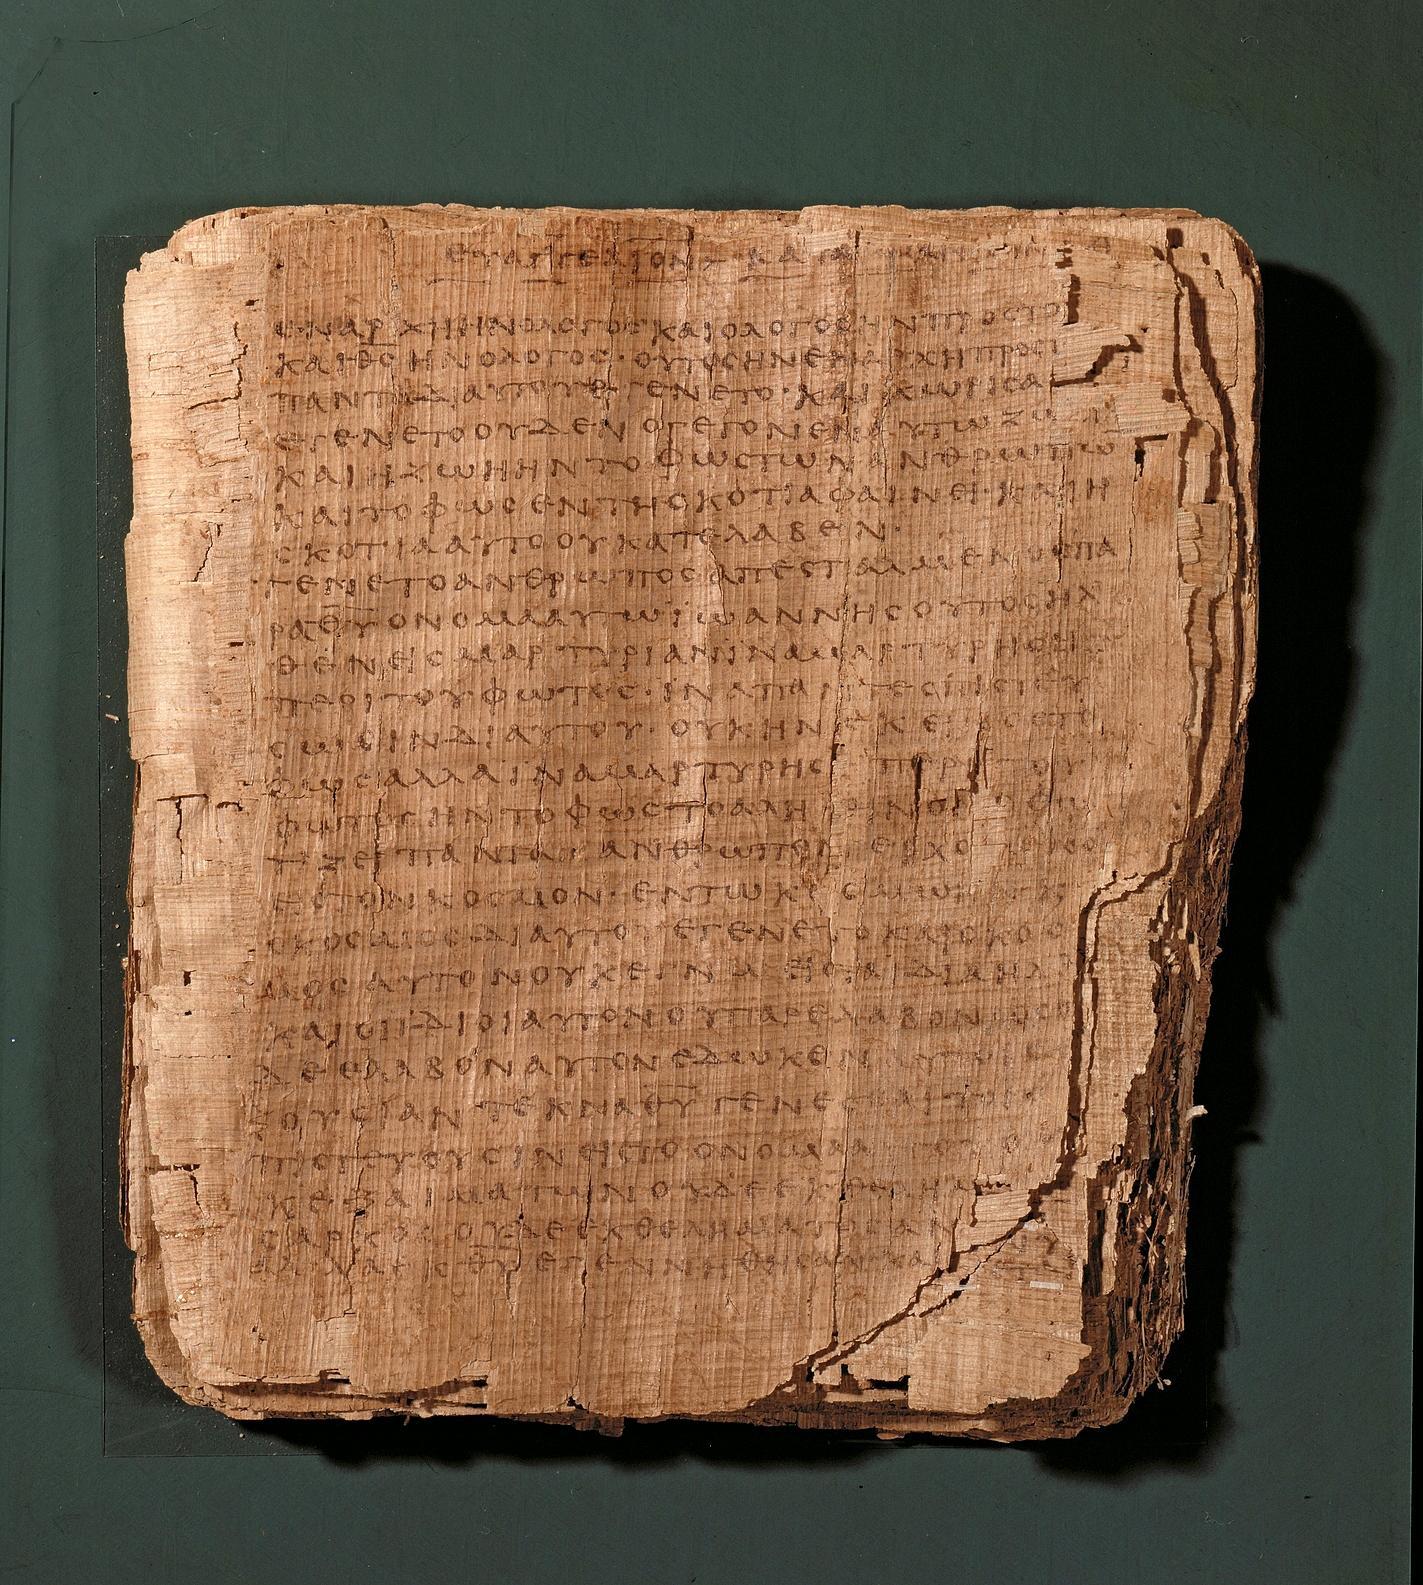 ΕΥΑΓΓΕΛΙΟΝ ΚΑΤΑ
ΕΝΑΡΧΗΗΝΟΛΟΓΟΣΚΑΙΟΛΟΓΟΣΗΝΠΡΟΣΤΟ
ΚΑΙΘ̅Σ̅ΗΝΟΛΟΓΟΣ·ΟΥΤΟΣΗΝΕΝΑΡΧΗΠΡΟΣΤ
ΠΑΝΤΑΔΙΑΥΤΟΥΕΓΕΝΕΤΟ·ΚΑΙΧΩΡΙΣΑ
ΕΓΕΝΕΤΟΟΥΔΕΝΟΓΕΓΟΝΕΝΕΝΑΥΤΩΖΩ
ΚΑΙΗΖΩΗΗΝΤΟΦΩΣΤΩΝΑΝΘΡΩΠΩ
ΚΑΙΤΟΦΩΣΕΝΤΗΣΚΟΤΙΑΦΑΙΝΕΙ·ΚΑΙΗ
ΣΚΟΤΙΑΑΥΤΟΟΥΚΑΤΕΛΑΒΕΝ·
ΓΕΝΕΤΟΑΝΘΡΩΠΟΣΑΠΕΣΤΑΛΜΕΝΟΣΠΑ
ΡΑΘ̅Υ̅ΟΝΟΜΑΑΥΤΩΪΩΑΝΝΗΣΟΥΤΟΣΗΛ
ΘΕΝΕΙΣΜΑΡΤΥΡΙΑΝΪΝΑΜΑΡΤΥΡΗΣΗ
ΠΕΡΙΤΟΥΦΩΤΟΣ·ΙΝΑΠΑΝΤΕΣΠΙΣΤΕΥ
ΣΩΣΙΝΔΙΑΥΤΟΥ·ΟΥΚΗΝΕΚΕΙΝΟΣΤΟ
ΦΩΣΑΛΛΑΙΝΑΜΑΡΤΥΡΗΣΗΠΕΡΙΤΟΥ
ΦΩΤΟΣΗΝΤΟΦΩΣΤΟΑΛΗΘΙΝΟΝΟΦΩ
ΤΙΖΕΙΠΑΝΤΑΑΝΘΡΩΠΟΝΕΡΧΟΜΕΝΟ
ΕΙΣΤΟΝΚΟΣΜΟΝ·ΕΝΤΩΚΟΣΜΩΗΝΚΑΙ
ΟΚΟΣΜΟΣΔΙΑΥΤΟΥΕΓΕΝΕΤΟΚΑΙΟΚΟΣ
ΜΟΣΑΥΤΟΝΟΥΚΕΓΝΩΕΙΣΤΑΙΔΙΑΗΛ
ΚΑΙΟΙΪΔΙΟΙΑΥΤΟΝΟΥΠΑΡΕΛΑΒΟΝΟΣΟΙ
ΔΕΕΛΑΒΟΝΑΥΤΟΝΕΔΩΚΕΝΑΥΤΟΙΣ
ΞΟΥΣΙΑΝΤΕΚΝΑΘ̅Υ̅ΓΕΝΕΣΘΑΙΤΟΙΣ
ΠΙΣΤΕΥΟΥΣΙΝΕΙΣΤΟΟΝΟΜΑ
ΚΕΞΑΙΜΑΤΩΝΟΥΔΕΕΚΘΕΛΗΜΑ
ΣΑΡΚΟΣΟΥΔΕΕΚΘΕΛΗΜΑΤΟΣΑΝ
ΑΛΛΑΕΚΘ̅Υ̅ΕΓΕΝΝΗΘΗΣΑΝΚΑΙ